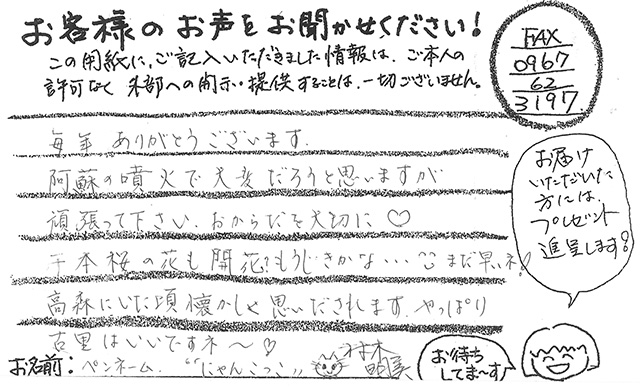 お客様のお声をお聞かせください!
この用紙に、ご記入いただきました情報は、ご本人の
許可なく外部への開示・提供することは、一切ございません。
FAX
0967
62
3197
毎年ありがとうございます。
阿蘇の噴火で大変だろうと思いますが
頑張って下さい。おからだを大切に♡
千本桜の花も開花?もうじきかな…まだ早いネ!
高森にいた頃懐かしく思いだされします。やっぱり
古里はいいですネ〜♡
お届け
いただいた
方には、
プレゼント
進呈します!
お名前:ペンネーム.“にゃんこっこ”
お待ち
してま〜す!